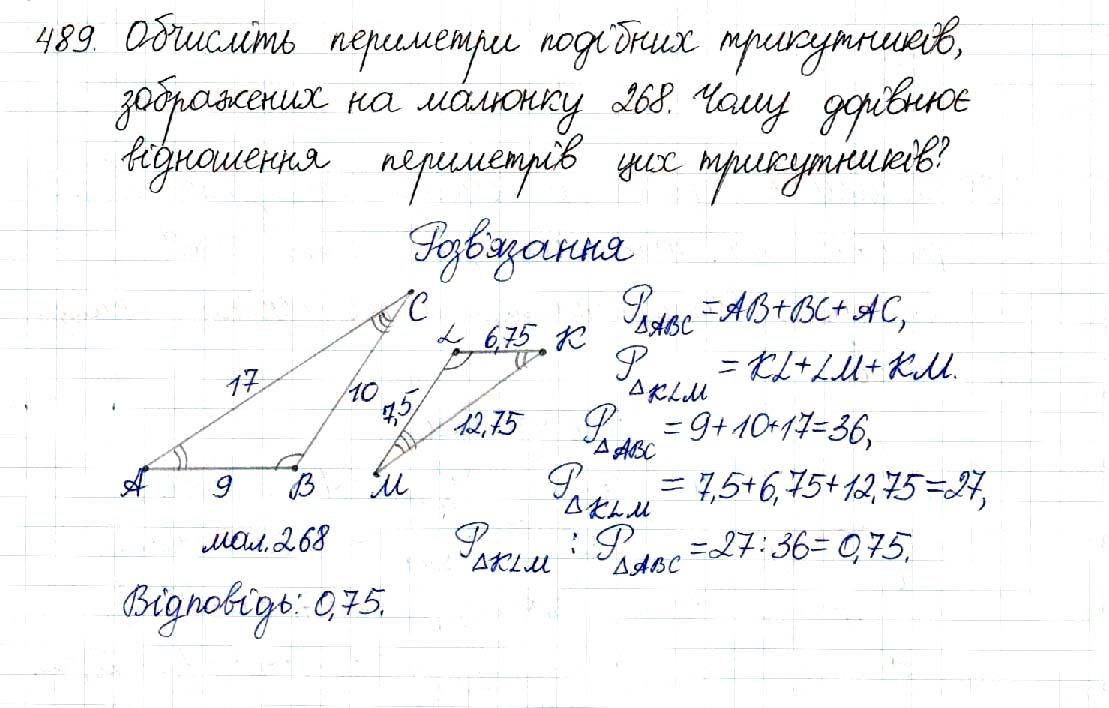 489. Обчисліть периметри подібних трикутників,
зображених на малюнку 268. Чому дорівнює
відношення периметрів цих трикутників?
Розв'язання
C
L 6,75 K
17
10
7,5
12,75
A 9 B M
мал.268
P△ABC = AB+BC+AC,
P△KLM = KL+LM+KM.
P△ABC = 9+10+17=36,
P△KLM = 7,5+6,75+12,75=27,
P△KLM : P△ABC = 27:36= 0,75.
Відповідь: 0,75.